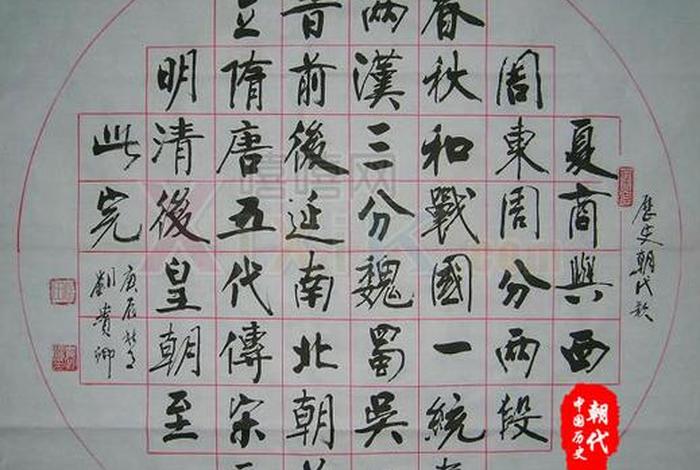 歷史朝代歌
夏商與西
周東周分兩段
春秋和戰國一統
兩漢三分魏蜀吳
晉前後延南北朝
立隋唐五代傳宋
明清後皇朝至
此完
庚辰秋月
劉貴卿
朝代
中国历史
嘻嘻网